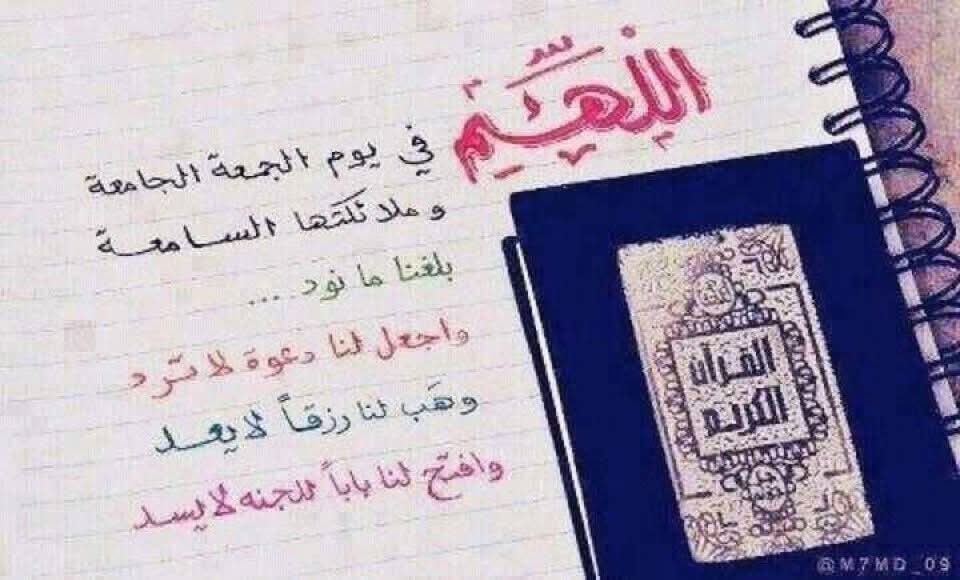 اللهم
في يوم الجمعة الجامعة
وملائكتها السامعة
بلغنا ما نود ....
واجعل لنا دعوة لا ترد
وهَب لنا رزقاً لا يعد
وافتح لنا باباً للجنه لا يسد
القرآن
الكريم
@M7MD_09